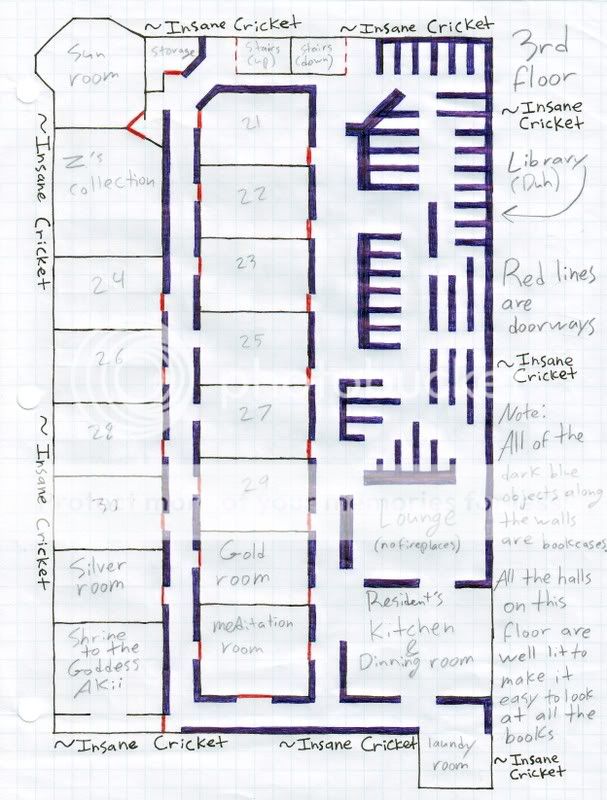 ~Insane Cricket
~Insane Cricket
3rd
floor
~Insane
Cricket
Library
(Duh)
Red lines
are
doorways
~Insane
Cricket
Note:
All of the
dark blue
objects along
the walls
are bookcases.
All the halls
on this
floor are
well lit to
make it
easy to look
at all the
books
~Insane
Cricket
Sun
room
Storage
Stairs
(up)
Stairs
(down)
~Insane Cricket
Z's
collection
24
26
28
30
~Insane Cricket
Silver
room
Shrine
to the
Goddess
Akii
21
22
23
25
27
29
Gold
room
meditation
room
Lounge
(no fireplaces)
Resident's
Kitchen
&
Dinning room
~Insane Cricket
~Insane Cricket
laundy
room
photobucket